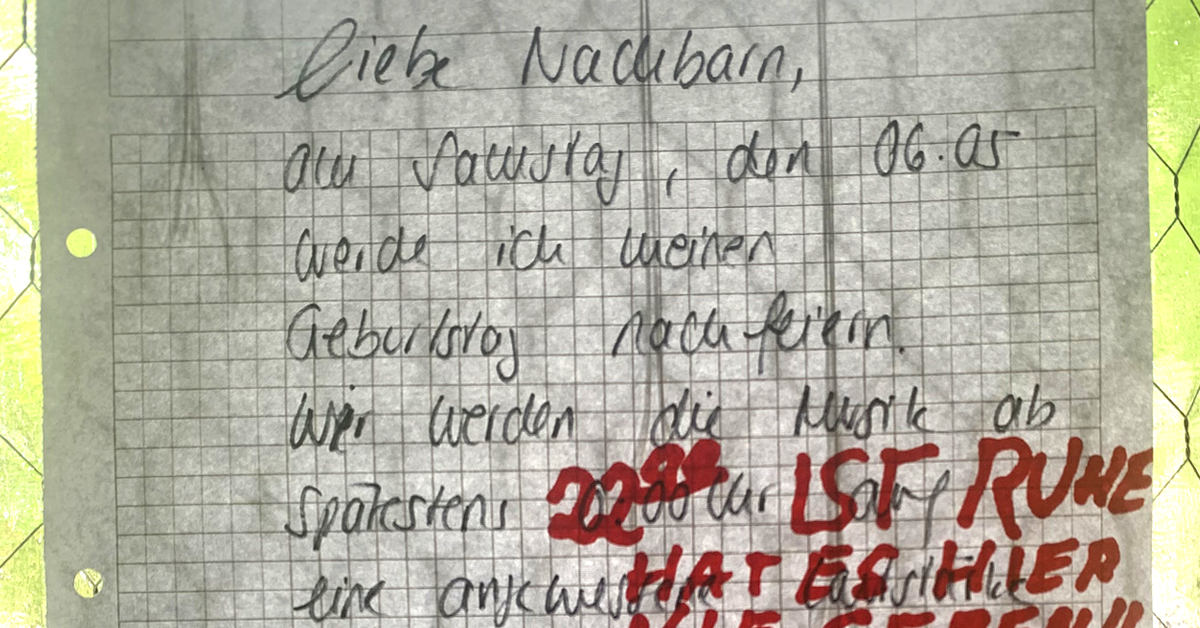 Liebe Nachbarn,
am Samstag, den 06.05
werde ich meinen
Geburtstag nachfeiern.
Wir werden die Musik ab
spätestens 22 00 Uhr IST auf RUHE
eine angemessene HAT ES HIER